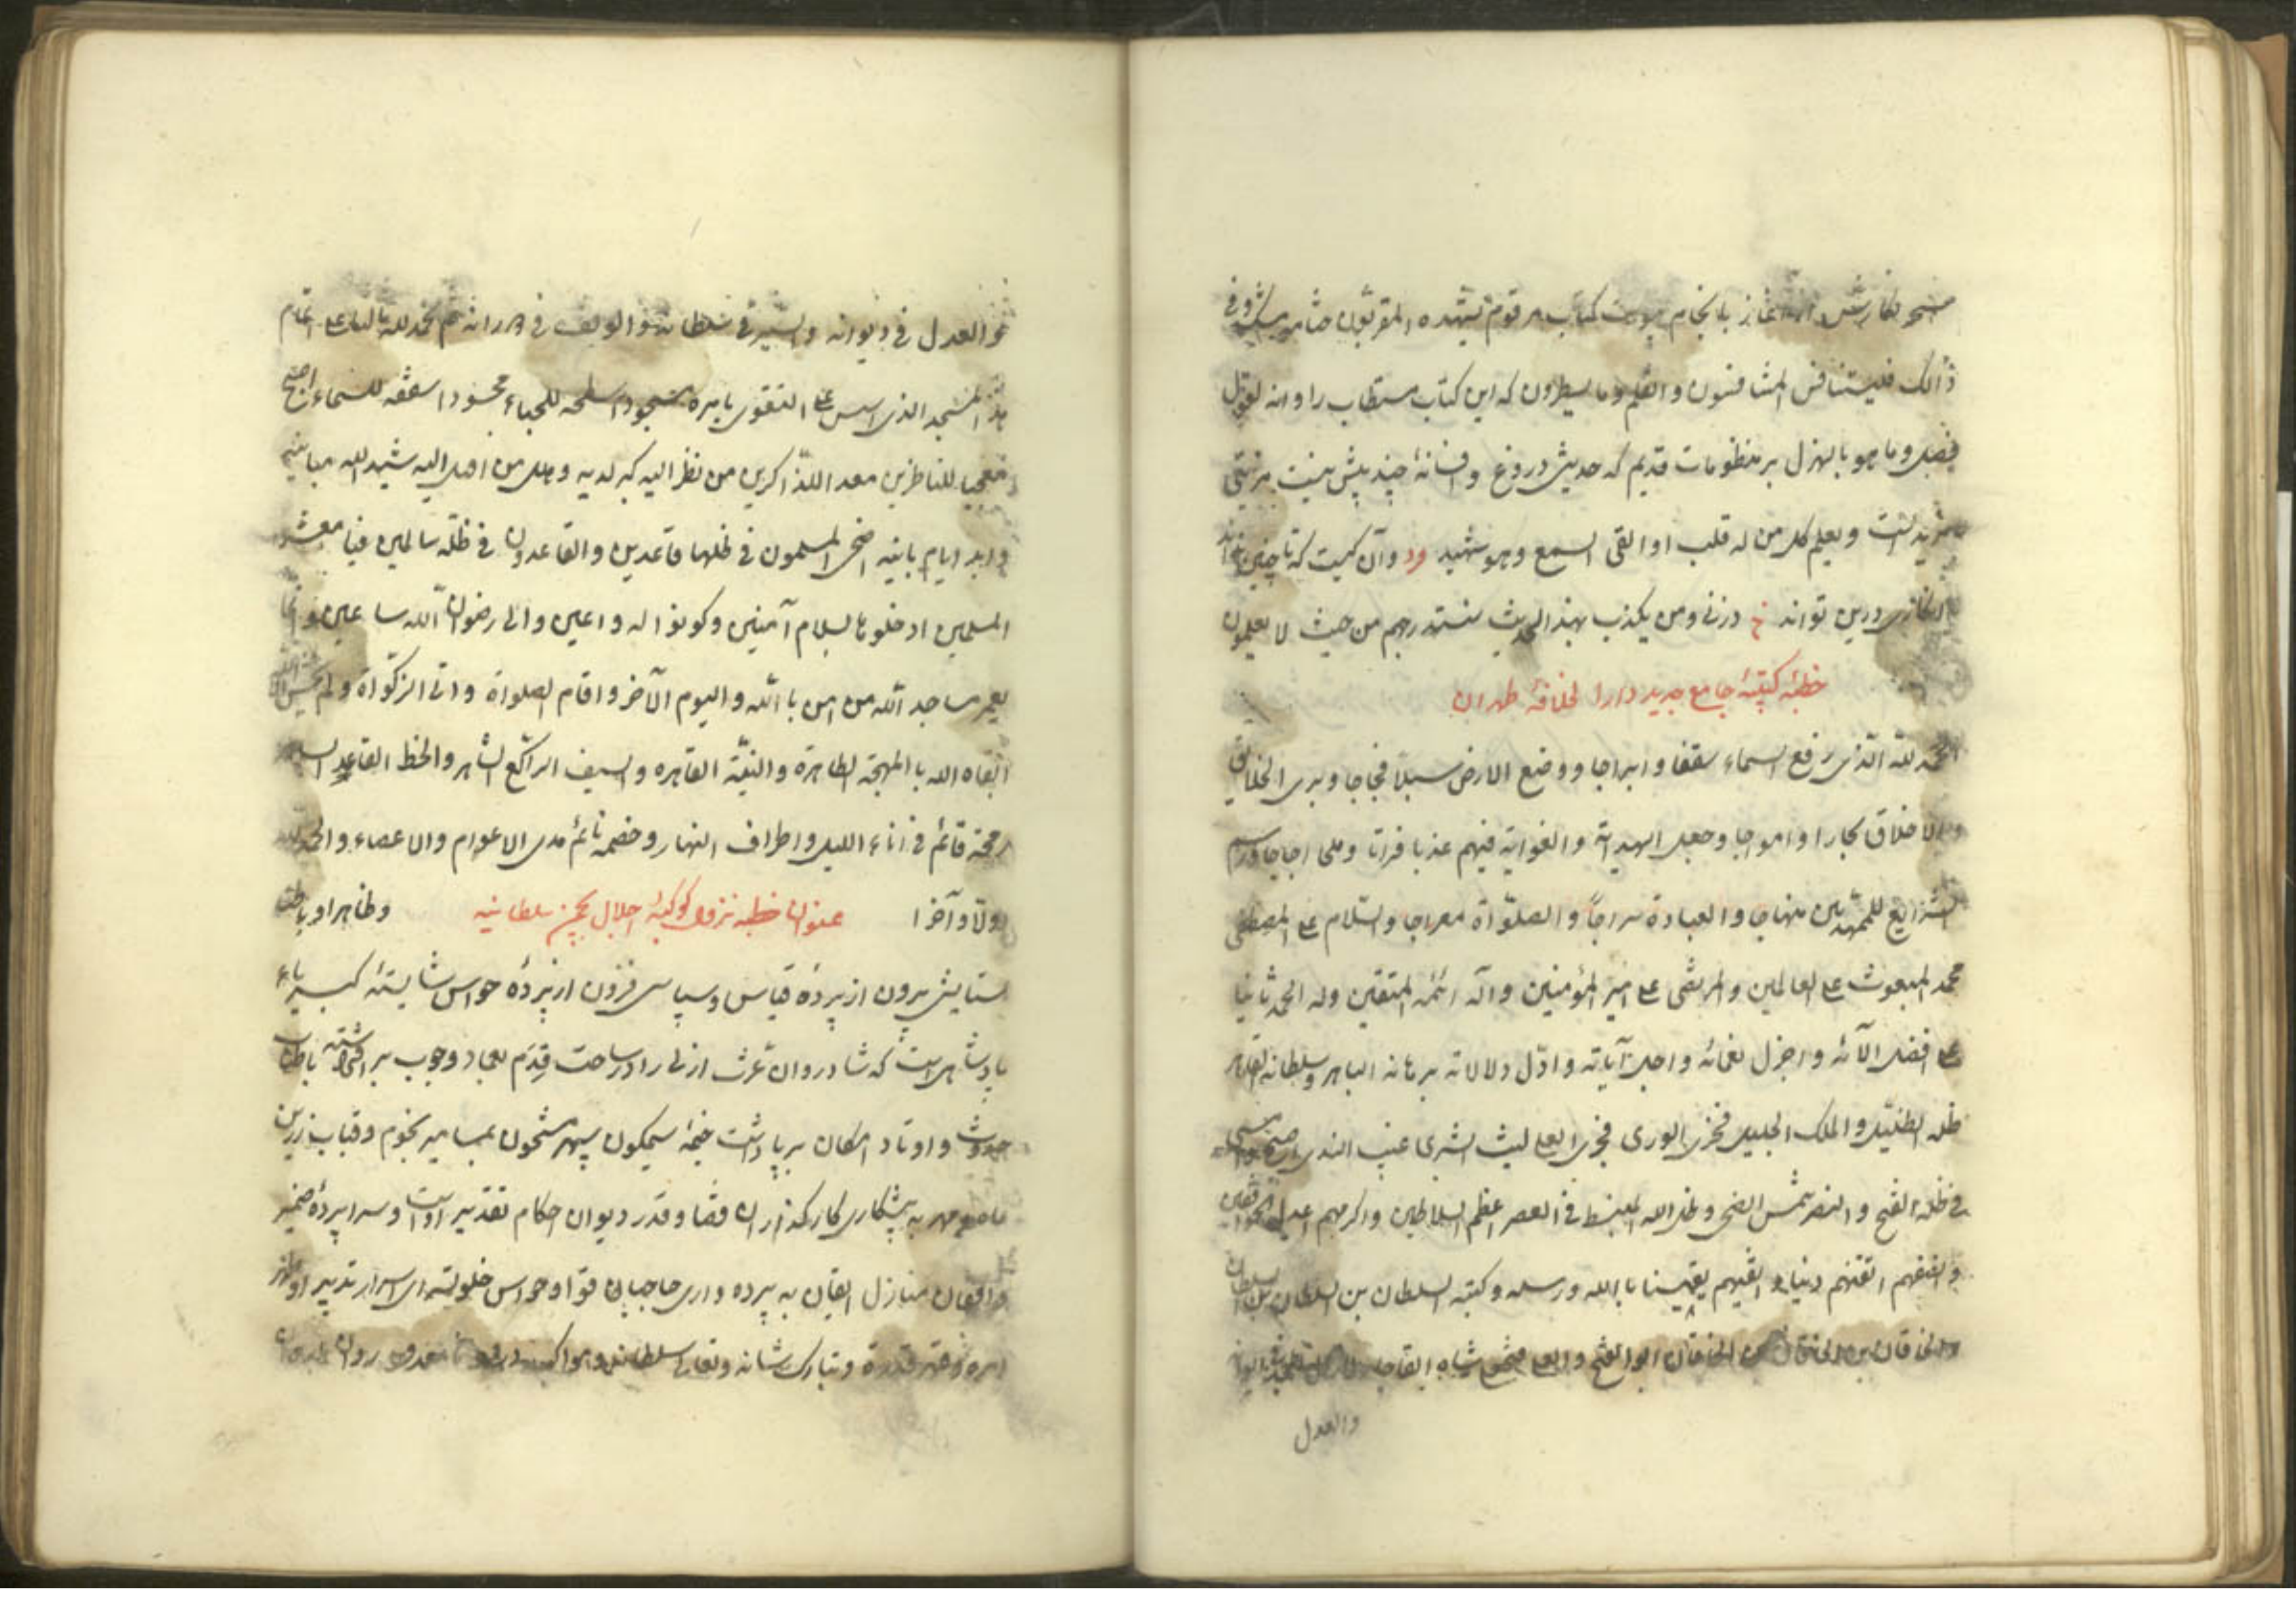 نگارش از آغاز تا انجام کتاب مرقوم یشهده المقربون ختامه مسک و فی
ذالک فلیتنافس المتنافسون والقلم وما یسطرون که این کتاب مستطاب را وانه لقول
فصل وما هو بالهزل بر منظومات قدیم که حدیثی دروغ و فسانهٔ چند بیش نیست مزیتی
مزید است ویعلم کل من له قلب او القی السمع وهو شهید وآن کیست که تا چنین
درین تواند درنی ومن یکذب بهذا الحدیث سنستدرجهم من حیث لا یعلمون
خطبهٔ کتیبهٔ جامع جدید دارا لخلافهٔ طهران
الحمد لله الذی رفع السماء سقفا وابراجا ووضع الارض سبلا فجاجا وبری الخلایق
والاخلاق بحارا وامواجا وجعل الهدایة والغوایة فیهم عذبا فراتا وملحا اجاجا ورسم
الشرایع للمهتدین منهاجا والعبادة سراجاً والصلوٰة معراجا والسلام علی المصطفی
محمد المبعوث علی العالمین والمرتضی علی امیر المؤمنین وآله ائمة المتقین وله الحمد ثانیا
علی افضل آلائه واجزل نعمائه واجل آیاته وادل دلالاته برهانه الباهر وسلطانه القاهر
ظله الظلیل والملک الجلیل فخر الوری العلی لیث الشری غیث الندی
فی ظله الفتح والنصر شمس الضحی وظل الله المنبسط فی العصر اعظم السلاطین واکرمهم اعدل
اتقنهم دنیا وایقنهم یقینا باالله ورسله وکتبه السلطان بن السلطان بن السلطان
والخاقان بن الخاقان بن الخاقان ابوالفتح والعلی فتحعلی شاه القاجار
والعدل
والعدل فی دیوانه والسیر فی سلطانه ثم الحمد لله علی اتمام
هذا المسجد الذی اسس علی التقوی باسره مسجودا سطحه للجباء محسودا سقفه للسماء اصبح
معجبا للناظرین معد اللذاکرین من نظر الیه کبر لدیه وهلل من اقبل الیه شید الله مبانیه
وابد ایام بانیه اضحی المسلمون فی ظلها قاعدین والقاعدون فی ظله سالمین فیا معشر
المسلمین ادخلوها بسلام آمنین وکونوا له داعین والی رضوان الله ساعین وانما
یعمر مساجد الله من امن باالله والیوم الآخر واقام الصلوة واتی الزکوٰة ولم یخش الا الله
ابقاه الله باالمهجة الطاهرة والنیّة القاهره والسیف الراکع الشاهر والخط القاعد
رمحه قائم فی اناء اللیل واطراف النهار وخصمه نائم مدی الاعوام والاعصاء والحمد لله
اولا وآخرا عنوان خطبه نزول کوکبهٔ اجلال بچمن سلطانیه وظاهرا وباطنا
ستایش برون از پردهٔ قیاس وسپاسی فزون از پردهٔ حواس شایستهٔ کبریاء
پادشاهی است که شادروان عرش ازلی را در ساحت قِدَم بعماد وجوب برافراشته باطناب
حدوث واوتاد امکان برپا داشت خیمهٔ سیمگون سپهر مشحون بمسامیر نجوم وقباب زرین
ماه و مهر به پیشکاری کارگذاران قضا وقدر دیوان احکام تقدیر اوست وسراپردهٔ ضمیر
واقفان منازل ایقان به پرده داری حاجبان قوا وحواس خلوتسرای اسرار تدبیر او
امره وقهر قدرة وتبارک شانه وتعالی سلطانه